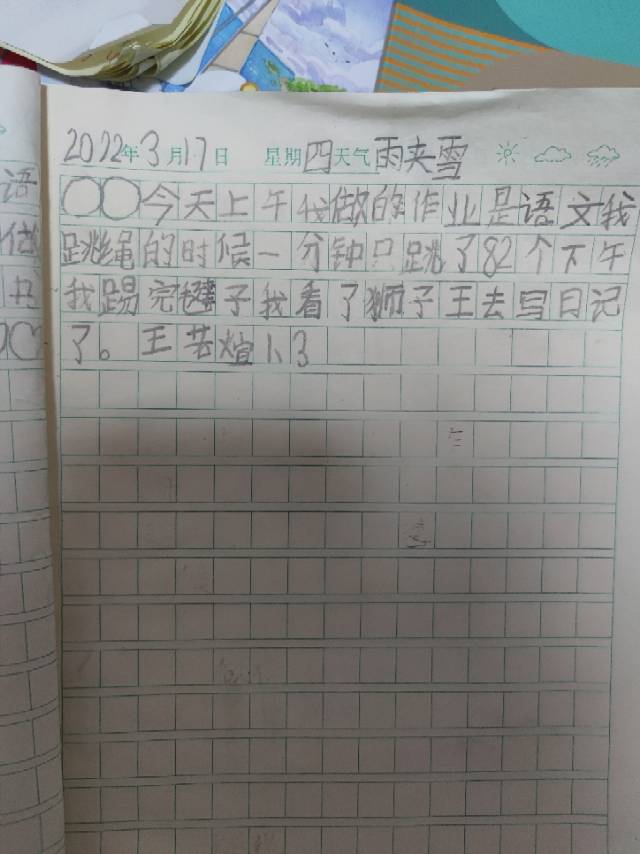 2022年3月17日 星期四天气雨夹雪
○○今天上午我做的作业是语文我
跳绳的时候一分钟只跳了82个下午
我踢完毽子我看了狮子王去写日记
了。王芸煊1、3
语
做